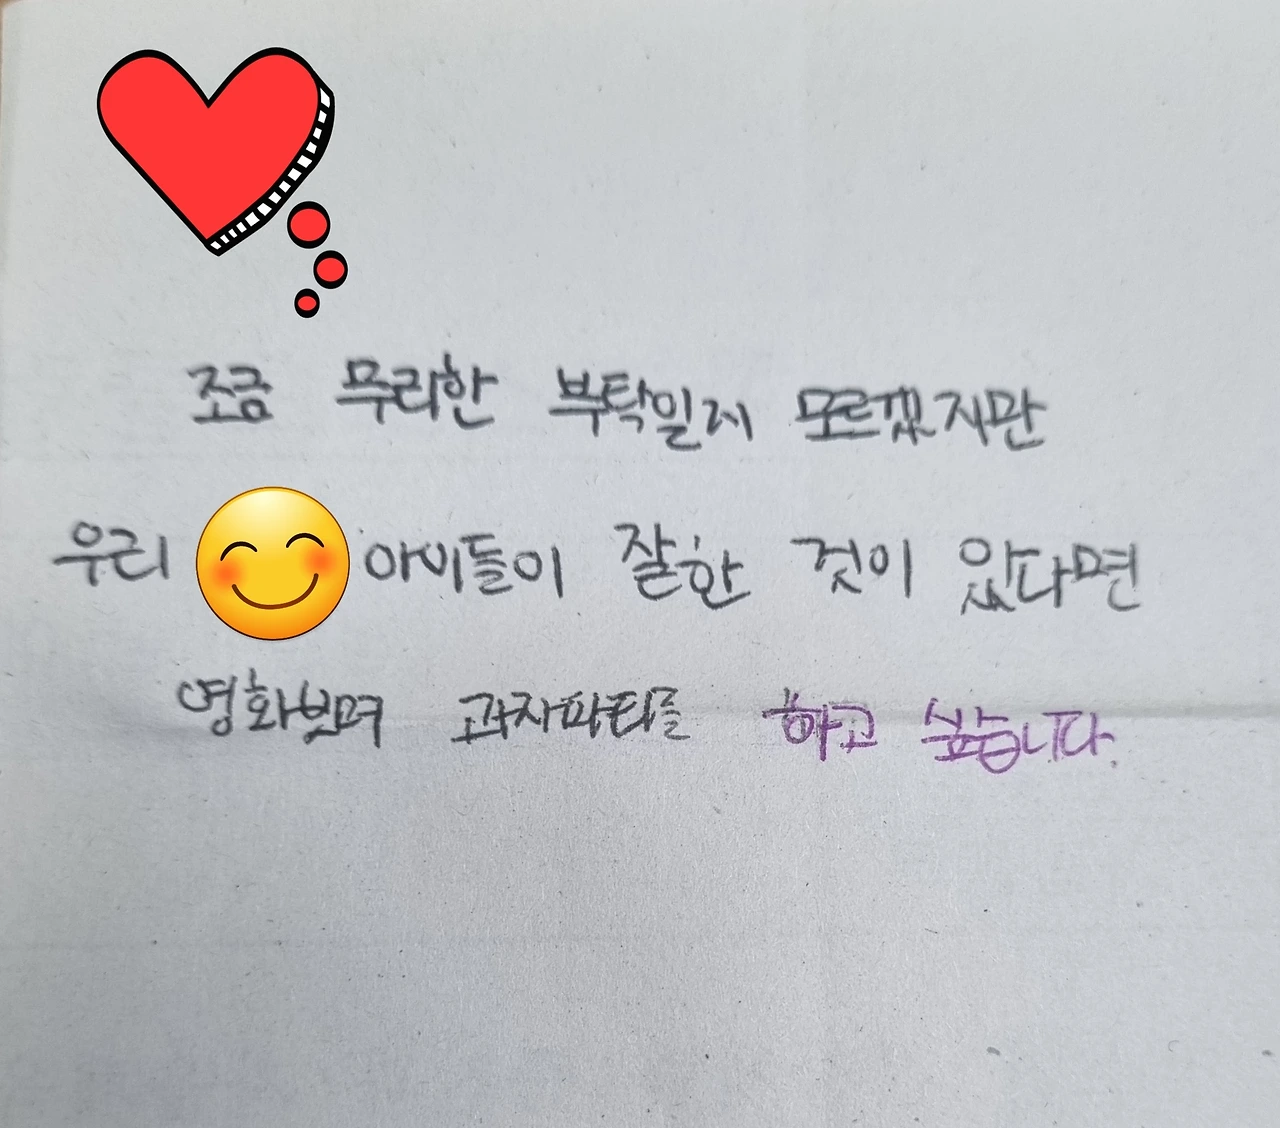 조금 무리한 부탁일지 모르겠지만
우리 아이들이 잘한 것이 있다면
영화보며 과자파티를 하고 싶습니다.